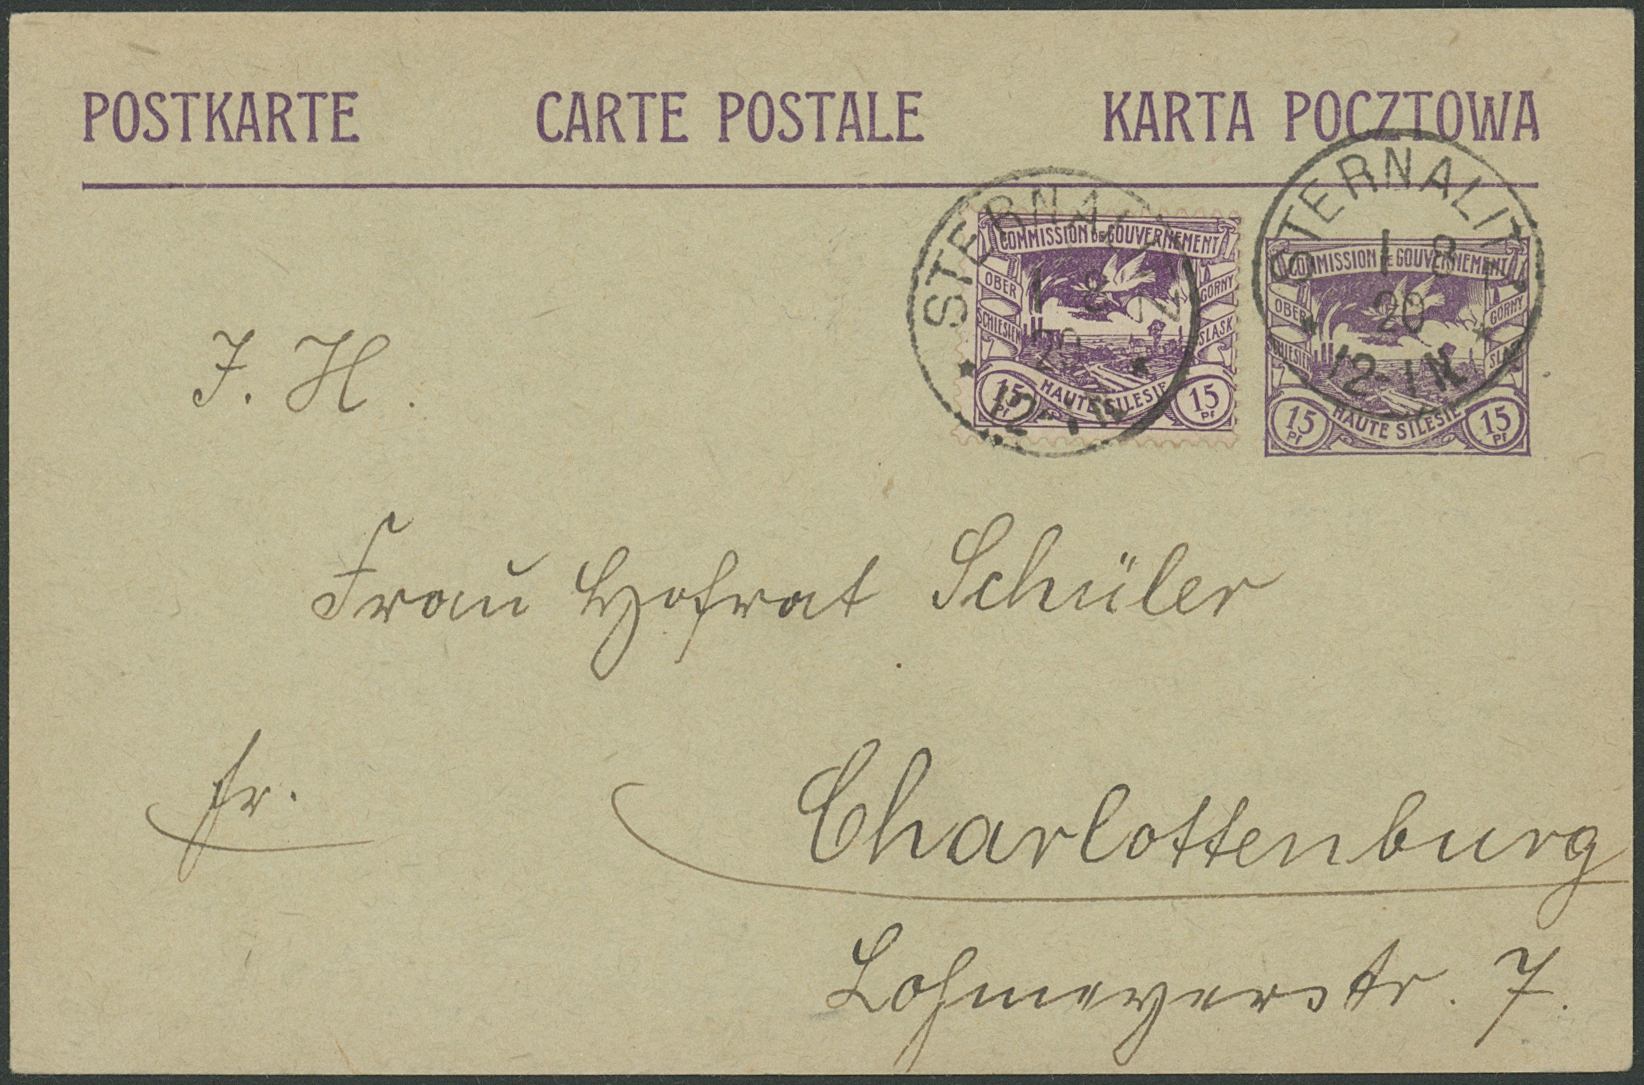 POSTKARTE CARTE POSTALE KARTA POCZTOWA
STERNALITZ
1 8
20
12-1N
COMMISSION DE GOUVERNEMENT
OBER SCHLESIEN
GORNY SLASK
HAUTE SILESIE
15 Pf 15 Pf
STERNALITZ
1 8
20
12-1N
COMMISSION DE GOUVERNEMENT
OBER SCHLESIEN
GORNY SLASK
HAUTE SILESIE
15 Pf 15 Pf
J. H.
Frau Hofrat Schüler
fr.
Charlottenburg
Lohmeyerstr. 7.